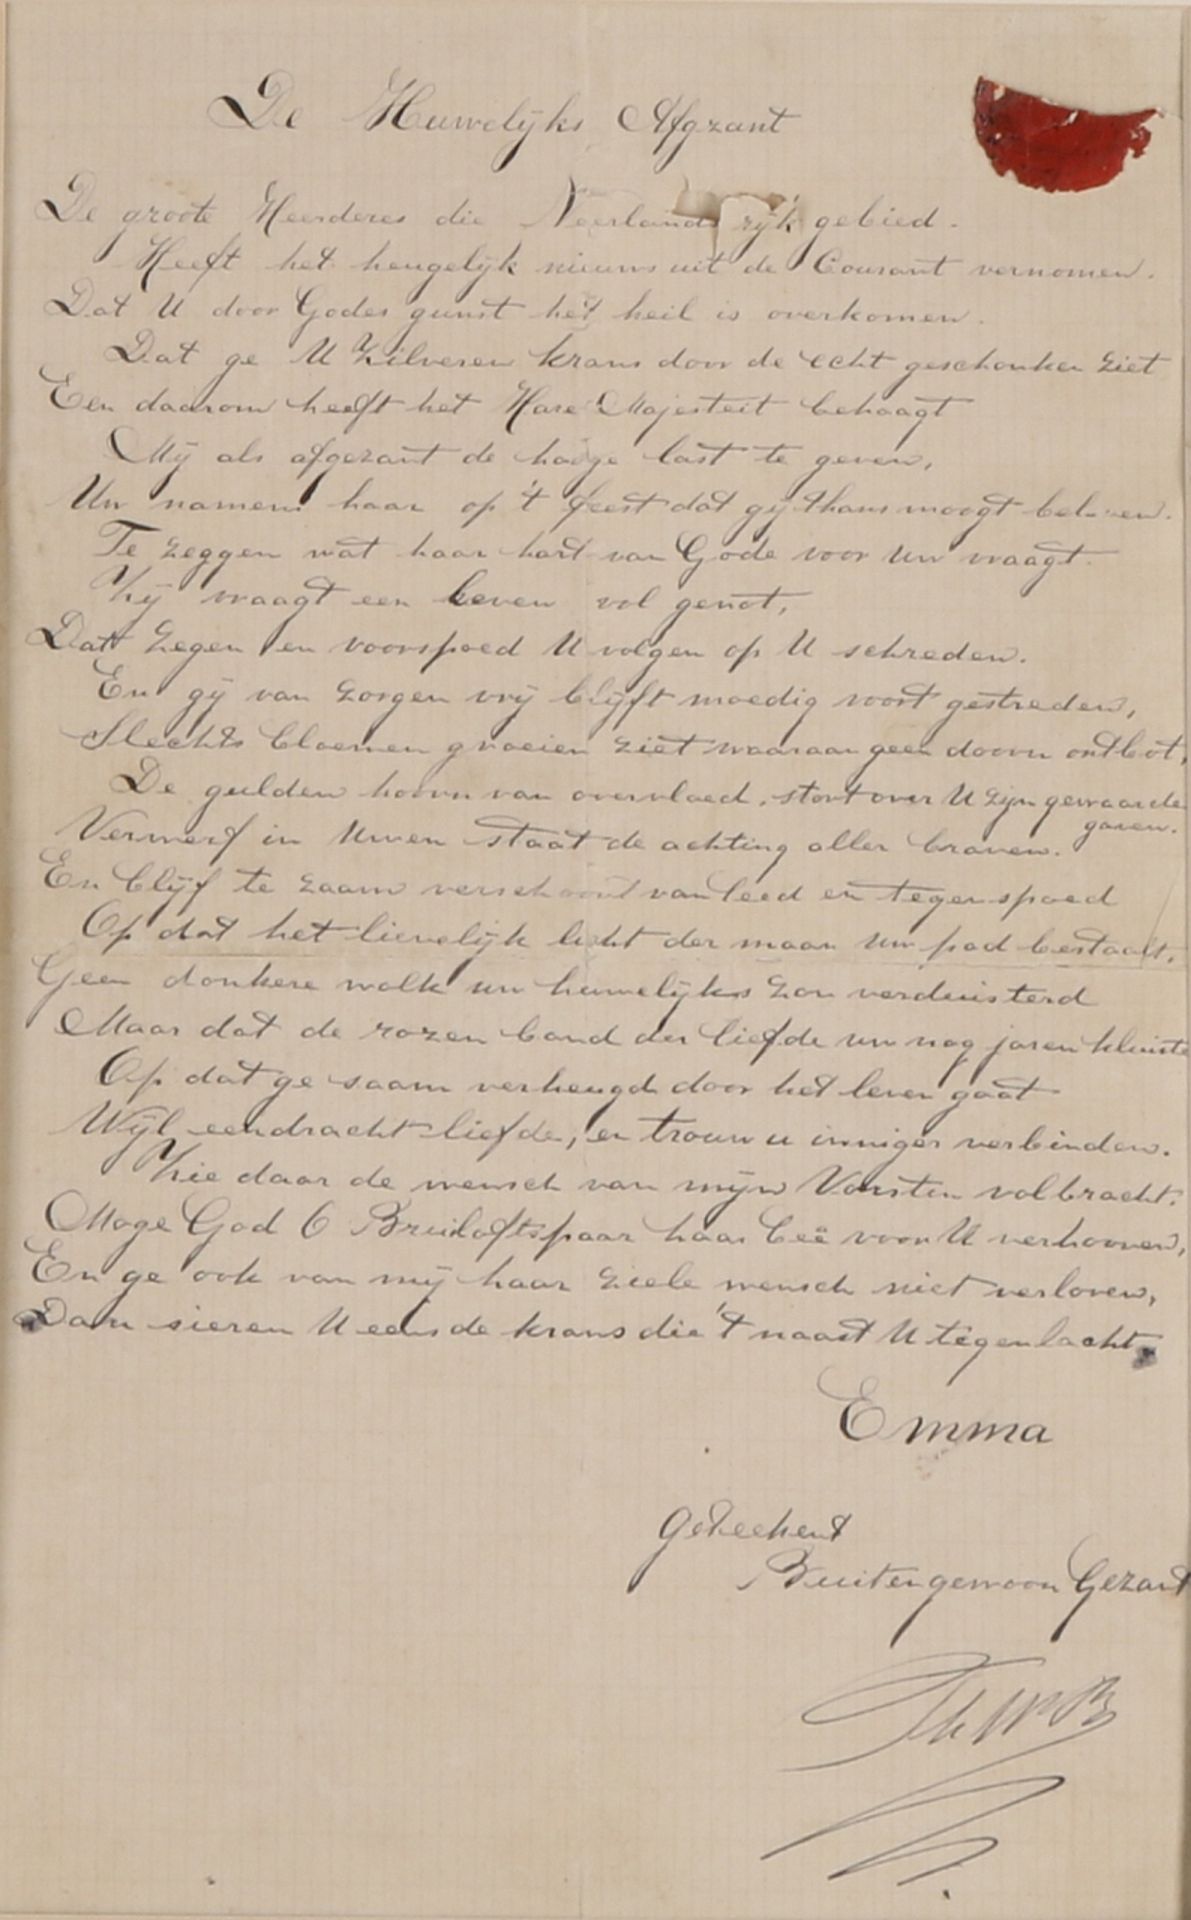 De Huwelijks Afgzant
De groote Heerderes die Neerlands rijk gebied.
Heeft het heugelijk nieuws uit de Courant vernomen.
Dat U door Godes gunst het heil is overkomen.
Dat ge U Zilveren krans door de echt geschonken ziet
Een daarom heeft het Hare Majesteit behaagt
Mij als afgezant de hooge last te geven,
Uw namens haar op 't feest dat gij thans moogt beleven.
Te zeggen wat haar hart van Gode voor uw vraagt.
Zij vraagt een leven vol genot,
Dat zegen en voorspoed U volgen op U schreden.
En gij van zorgen vrij blijft moedig voort gestreden,
Slechts bloemen groeien ziet waaraan geen doorn ontbot,
De gulden hoorn van overvloed, stort over U zijn gewaarde
gaven.
Verwerf in Uwen staat de achting aller braven.
En blijf te zaam verschoont van leed en tegenspoed
Op dat het lievelijk licht der maan uw pad bestaalt.
Geen donkere wolk uw huwelijks zon verduisterd
Maar dat de rozen band der liefde uw nog jaren kluiste
Op dat ge saam verheugd door het leven gaat
Wijl eendracht liefde, en trouw u inniger verbinden.
Zie daar de wensch van mijn Vorstin volbracht.
Moge God O Bruiloftspaar haar beê voor U verhooren,
En ge ook van mij haar ziele wensch niet verloren,
Dan sieren U eens de krans die 't naast U tegenlacht
Emma
Geteekent
Buitengewoon Gezant